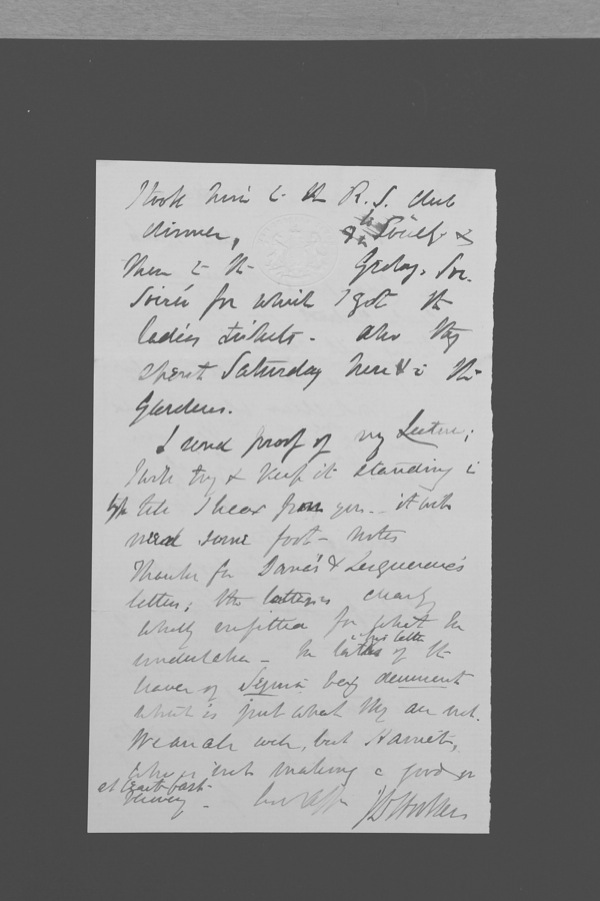 I took him to the R. S. Club
dinner, & to Society &
then to the Geolog. Soc.
Soirée for which I got the
ladies tickets - also they
spent Saturday here & in the
Gardens.
I send proof of my Lecture;
I will try & keep it standing in
type till I hear from you - it will
need some foot-notes
Thanks for Dana's & Lesquereux's
letters; the latter is clearly
wholly unfitted for what he
undertakes - he talks in his letter of the
leaves of being
which is just what they are not.
We are all well, but Harriet,
who is not making a good or
at least fast
recovery - Ever aff
J D Hooker